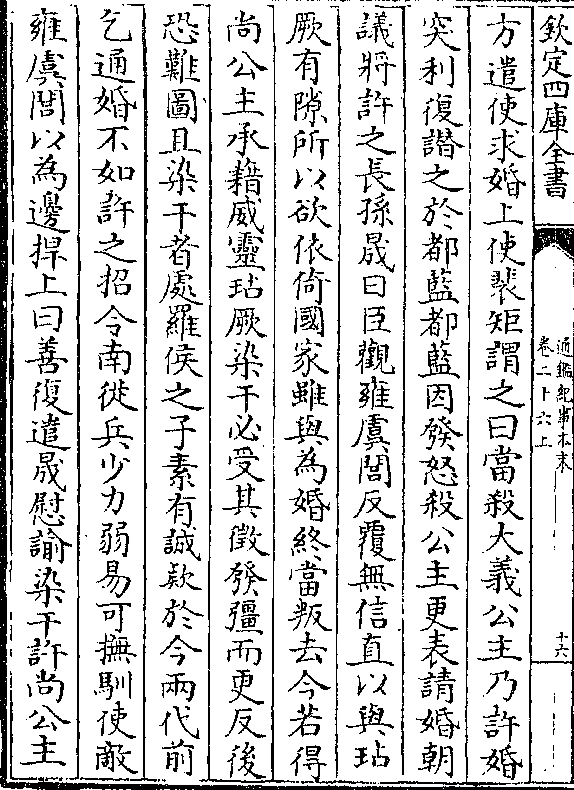 欽定四庫全書
通鑑紀事本末
卷二十六上
十六
方遣使求婚上使裴矩謂之曰當殺大義公主乃許婚
突利復譖之於都藍都藍因發怒殺公主更表請婚朝
議將許之長孫晟曰臣觀雍虞閭反覆無信直以與玷
厥有隙所以欲依倚國家雖與為婚終當叛去今若得
尚公主承籍威靈玷厥染干必受其徵發彊而更反後
恐難圖且染干者處羅侯之子素有誠款於今兩代前
乞通婚不如許之招令南徙兵少力弱易可撫馴使敵
雍虞閭以為邊捍上曰善復遣晟慰諭染干許尚公主